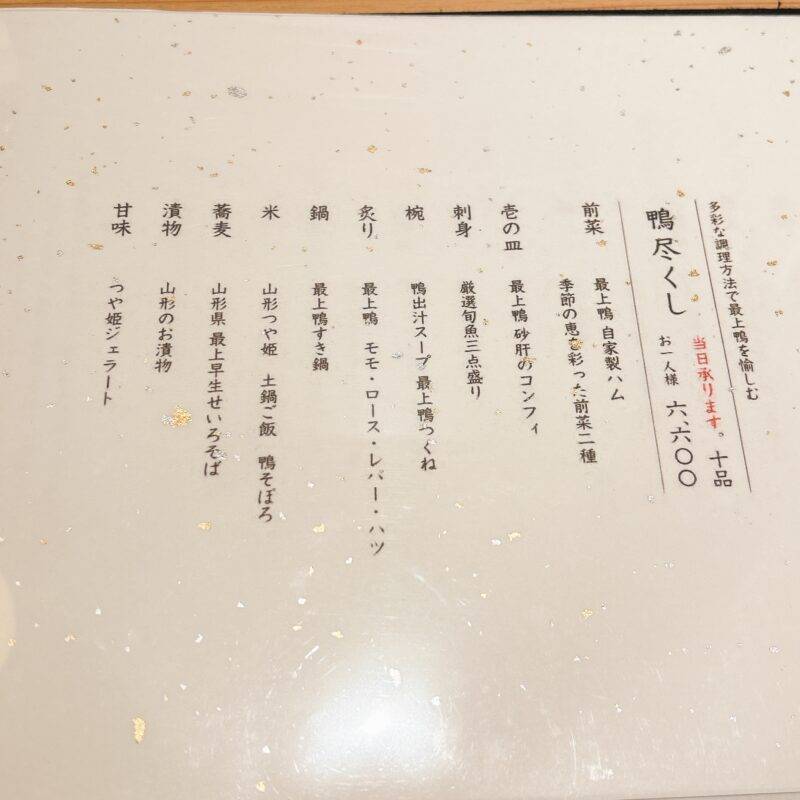 多彩な調理方法で最上鴨を愉しむ
当日承ります。 十品
鴨尽くし お一人様 六、六〇〇
前菜 最上鴨 自家製ハム
季節の恵を彩った前菜二種
壱の皿 最上鴨 砂肝のコンフィ
刺身 厳選旬魚三点盛り
椀 鴨出汁スープ 最上鴨つくね
炙り 最上鴨 モモ・ロース・レバー・ハツ
鍋 最上鴨すき鍋
米 山形つや姫 土鍋ご飯 鴨そぼろ
蕎麦 山形県 最上早生せいろそば
漬物 山形のお漬物
甘味 つや姫ジェラート